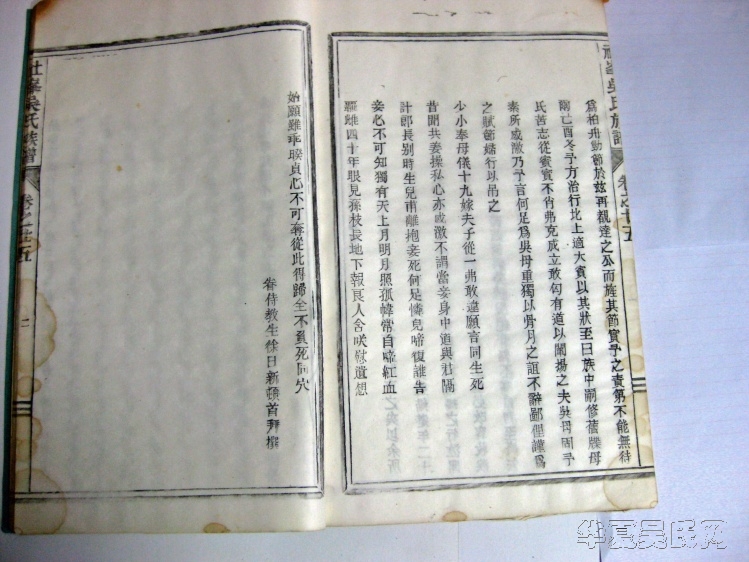 吳氏族譜
卷之廿五
為柏舟勁節於茲再覩達之公而旌其節實予之責第不能無待
爾乙酉冬予方治行比上適大賓以其狀至曰族中嗣修舊牒母
氏苦志從蜜實不肖弗克成立敢匄有道以闡揚之夫吳母固予
素所感激乃予言何足為吳母重獨以骨月之誼不辭鄙俚謹為
之賦節婦行以吊之
少小奉母儀十九嫁夫子從一弗敢違願言同生死
昔聞共姜操私心亦咸激不謂當妾身中道與君隔
計郎長別時生兒甫離抱妾死何足憐兒啼復誰告
妾心不可知獨有天上月明月照孤幃常自啼紅血
雖四十年眼見孫枝長地下報良人含咲慰遺想
始願雖乖暌貞心不可奪從此得歸全不負死同穴
眷侍教生徐日新頓首拜撰
吳氏族譜
卷之
五
二
华夏吴氏网